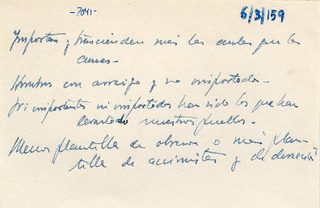 -7041-
6/3/159
Importan y trascienden más las cunas que las
camas-
Hombres con arraigo y no importados-
Ni importante ni importados han sido los que han
levantado nuestros pueblos-
Menos plantilla de obreros o más plan-
tilla de accionistas y de dirección